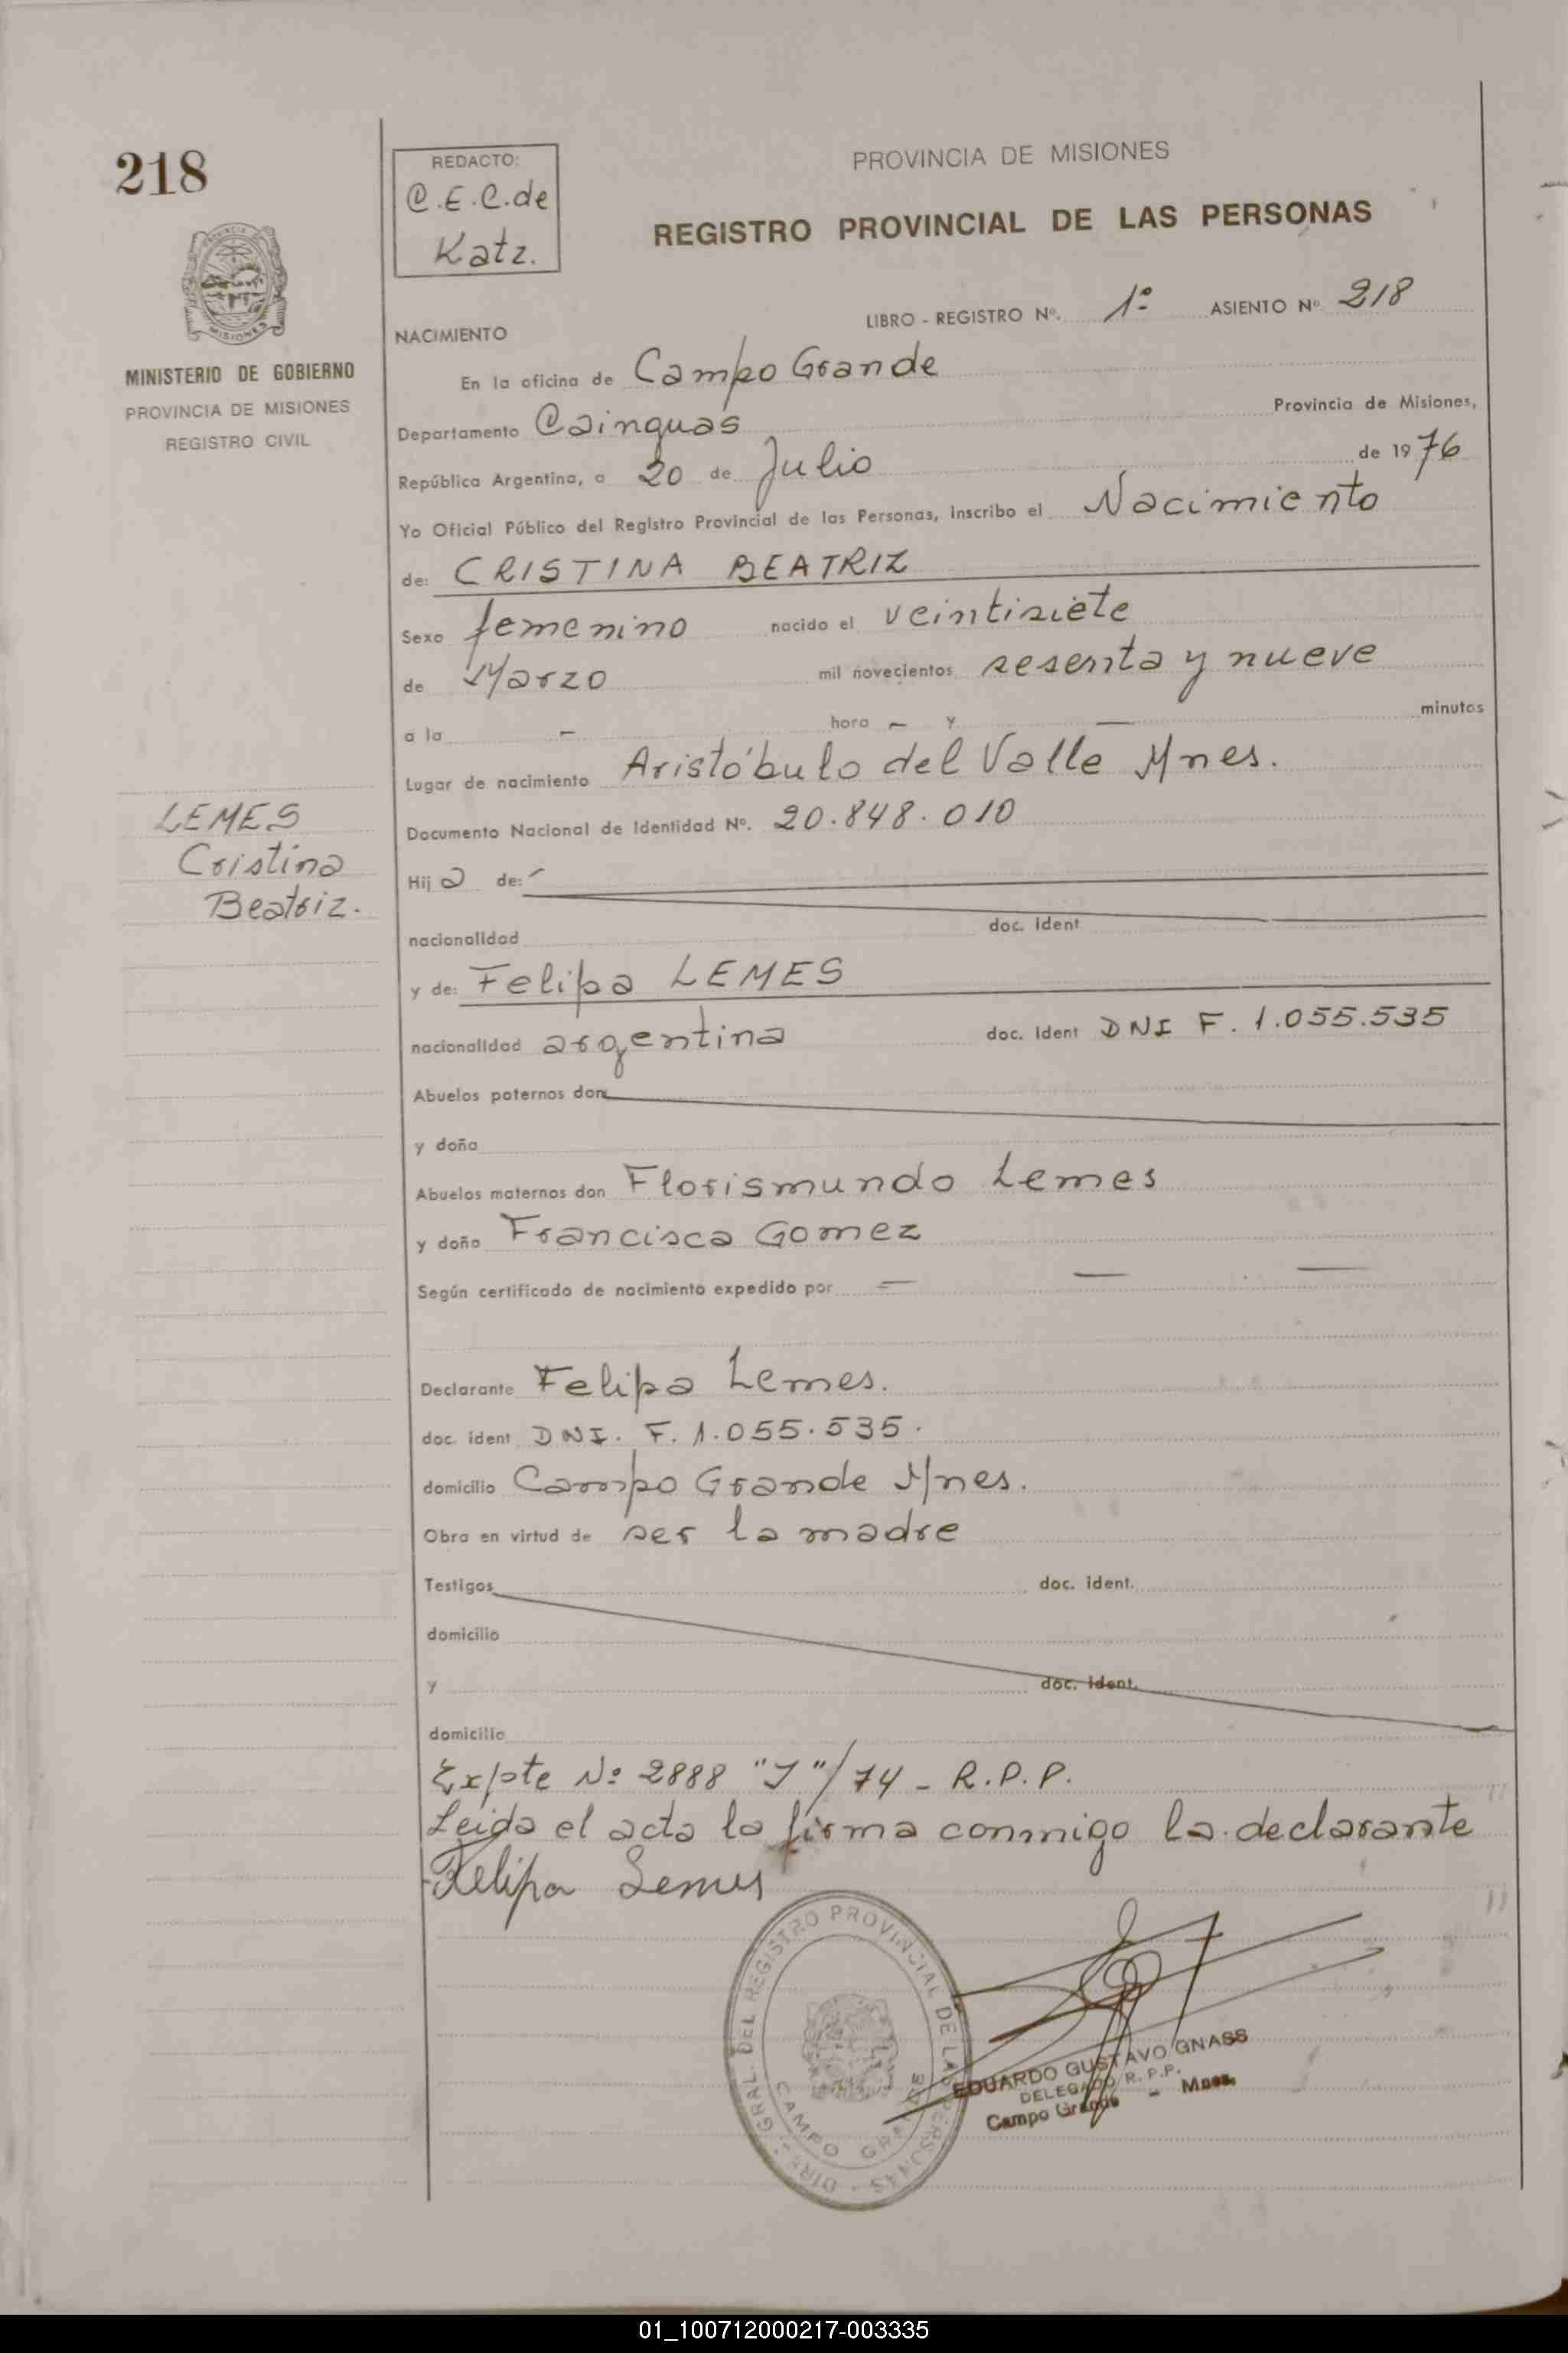 218
REDACTO:
C.E.C. de
Katz.
PROVINCIA DE MISIONES
REGISTRO PROVINCIAL DE LAS PERSONAS
MINISTERIO DE GOBIERNO
PROVINCIA DE MISIONES
REGISTRO CIVIL
LIBRO - REGISTRO Nº. 1º ASIENTO Nº 218
NACIMIENTO
En la oficina de Campo Grande
Departamento Cainguás Provincia de Misiones,
República Argentina, a 20 de Julio de 1976
Yo Oficial Público del Registro Provincial de las Personas, inscribo el Nacimiento
de: CRISTINA BEATRIZ
Sexo femenino nacido el veintisiete
de Marzo mil novecientos sesenta y nueve
a la - hora - y - minutos
Lugar de nacimiento Aristóbulo del Valle Mnes.
LEMES
Cristina
Beatriz.
Documento Nacional de Identidad Nº. 20.848.010
Hija de:
nacionalidad doc. ident
y de: Felipa LEMES
nacionalidad argentina doc. ident DNI F. 1.055.535
Abuelos paternos don
y doña
Abuelos maternos don Florismundo Lemes
y doña Francisca Gomez
Según certificado de nacimiento expedido por - - -
Declarante Felipa Lemes.
doc. ident DNI. F. 1.055.535.
domicilio Campo Grande Mnes.
Obra en virtud de ser la madre
Testigos doc. ident.
domicilio
y doc. ident.
domicilio
Expte Nº 2888 "J"/74 - R.P.P.
Leida el acta la firma conmigo la declarante
Felipa Lemes
DIRE. GRAL. DEL REGISTRO PROVINCIAL DE LAS PERSONAS
CAMPO GRANDE
EDUARDO GUSTAVO GNASS
DELEGADO R.P.P.
Campo Grande - Mnes.
01_100712000217-003335